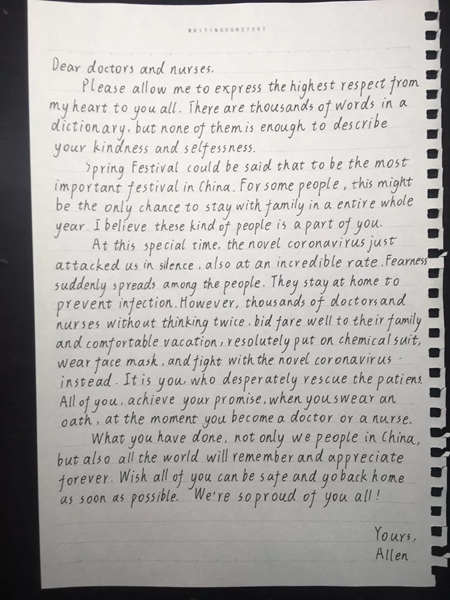 WRITINGOURSTORY
Dear doctors and nurses.
Please allow me to express the highest respect from
my heart to you all. There are thousands of words in a
dictionary, but none of them is enough to describe
your kindness and selfessness.
Spring Festival could be said that to be the most
important festival in China. For some people, this might
be the only chance to stay with family in a entire whole
year. I believe these kind of people is a part of you.
At this special time, the novel coronavirus just
attacked us in silence, also at an incredible rate. Fearness
suddenly spreads among the people. They stay at home to
prevent infection. However, thousands of doctors and
nurses without thinking twice, bid fare well to their family
and comfortable vacation, resolutely put on chemical suit,
wear face mask, and fight with the novel coronavirus
instead. It is you, who desperately rescue the patient.
All of you, achieve your promise, when you swear an
oath, at the moment you become a doctor or a nurse.
What you have done, not only we people in China,
but also all the world will remember and appreciate
forever. Wish all of you can be safe and go back home
as soon as possible. We're so proud of you all!
Yours,
Allen